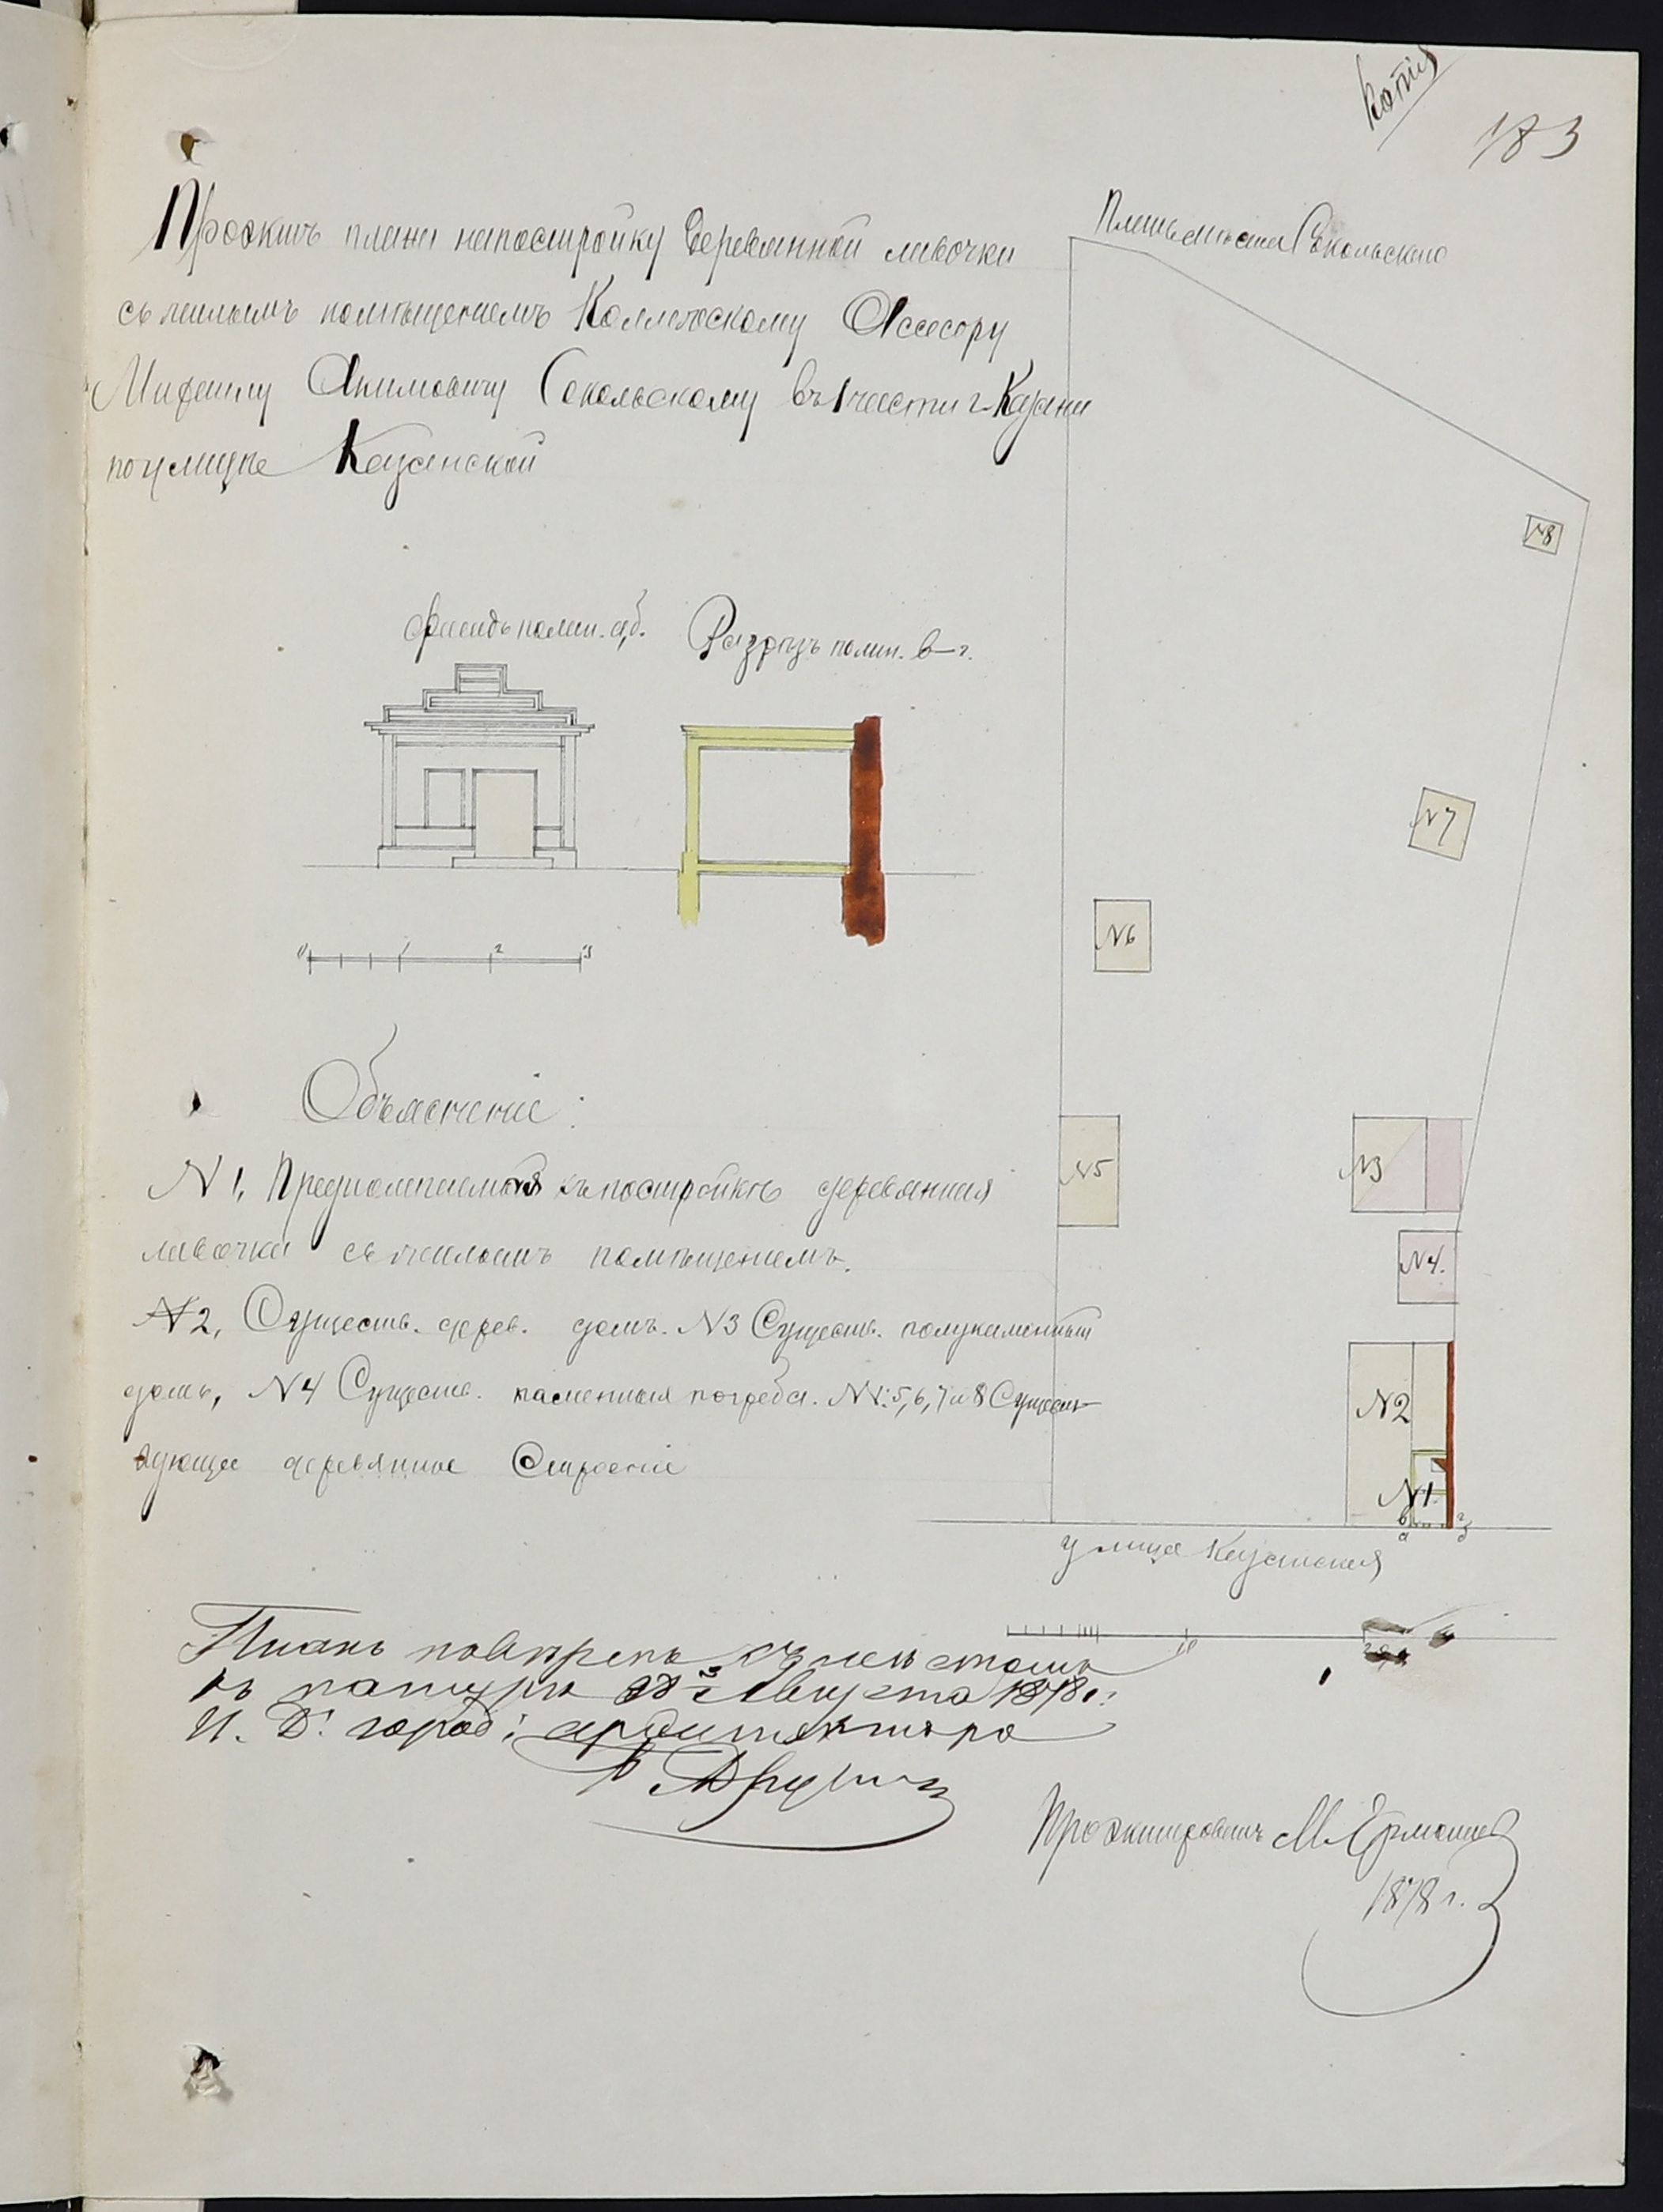 копія
183
Проэктъ плана на постройку деревянной лавочки
съ жилымъ помѣщеніемъ Коллежскому Ассесору
Акимовичу Сокольскому въ 1 части г. Казани
по улицѣ Казанской
Планъ мѣста Сокольскаго
Фасадъ по лин. а, б.
Разрѣзъ по лин. в-г.
0 1 2 3
N8
N7
N6
N5
N3
N4.
N2
N1.
в г
а б
улица Казанская
10
Объясненіе:
N 1, Предполагаемая къ постройкѣ деревянная
лавочка съ жилымъ помѣщеніемъ.
N2, Существ. дерев. домъ. N3 Существ. полукаменный
домъ, N4 Существ. каменныя погреба. NN: 5, 6, 7 и 8 Сущест-
вующіе деревянные Строенія
Планъ повѣренъ съ мѣстомъ
въ натурѣ Августа 1878 г:
И. Д. город: архитектора
Проэктировалъ М. Ермолаев
1878 г.